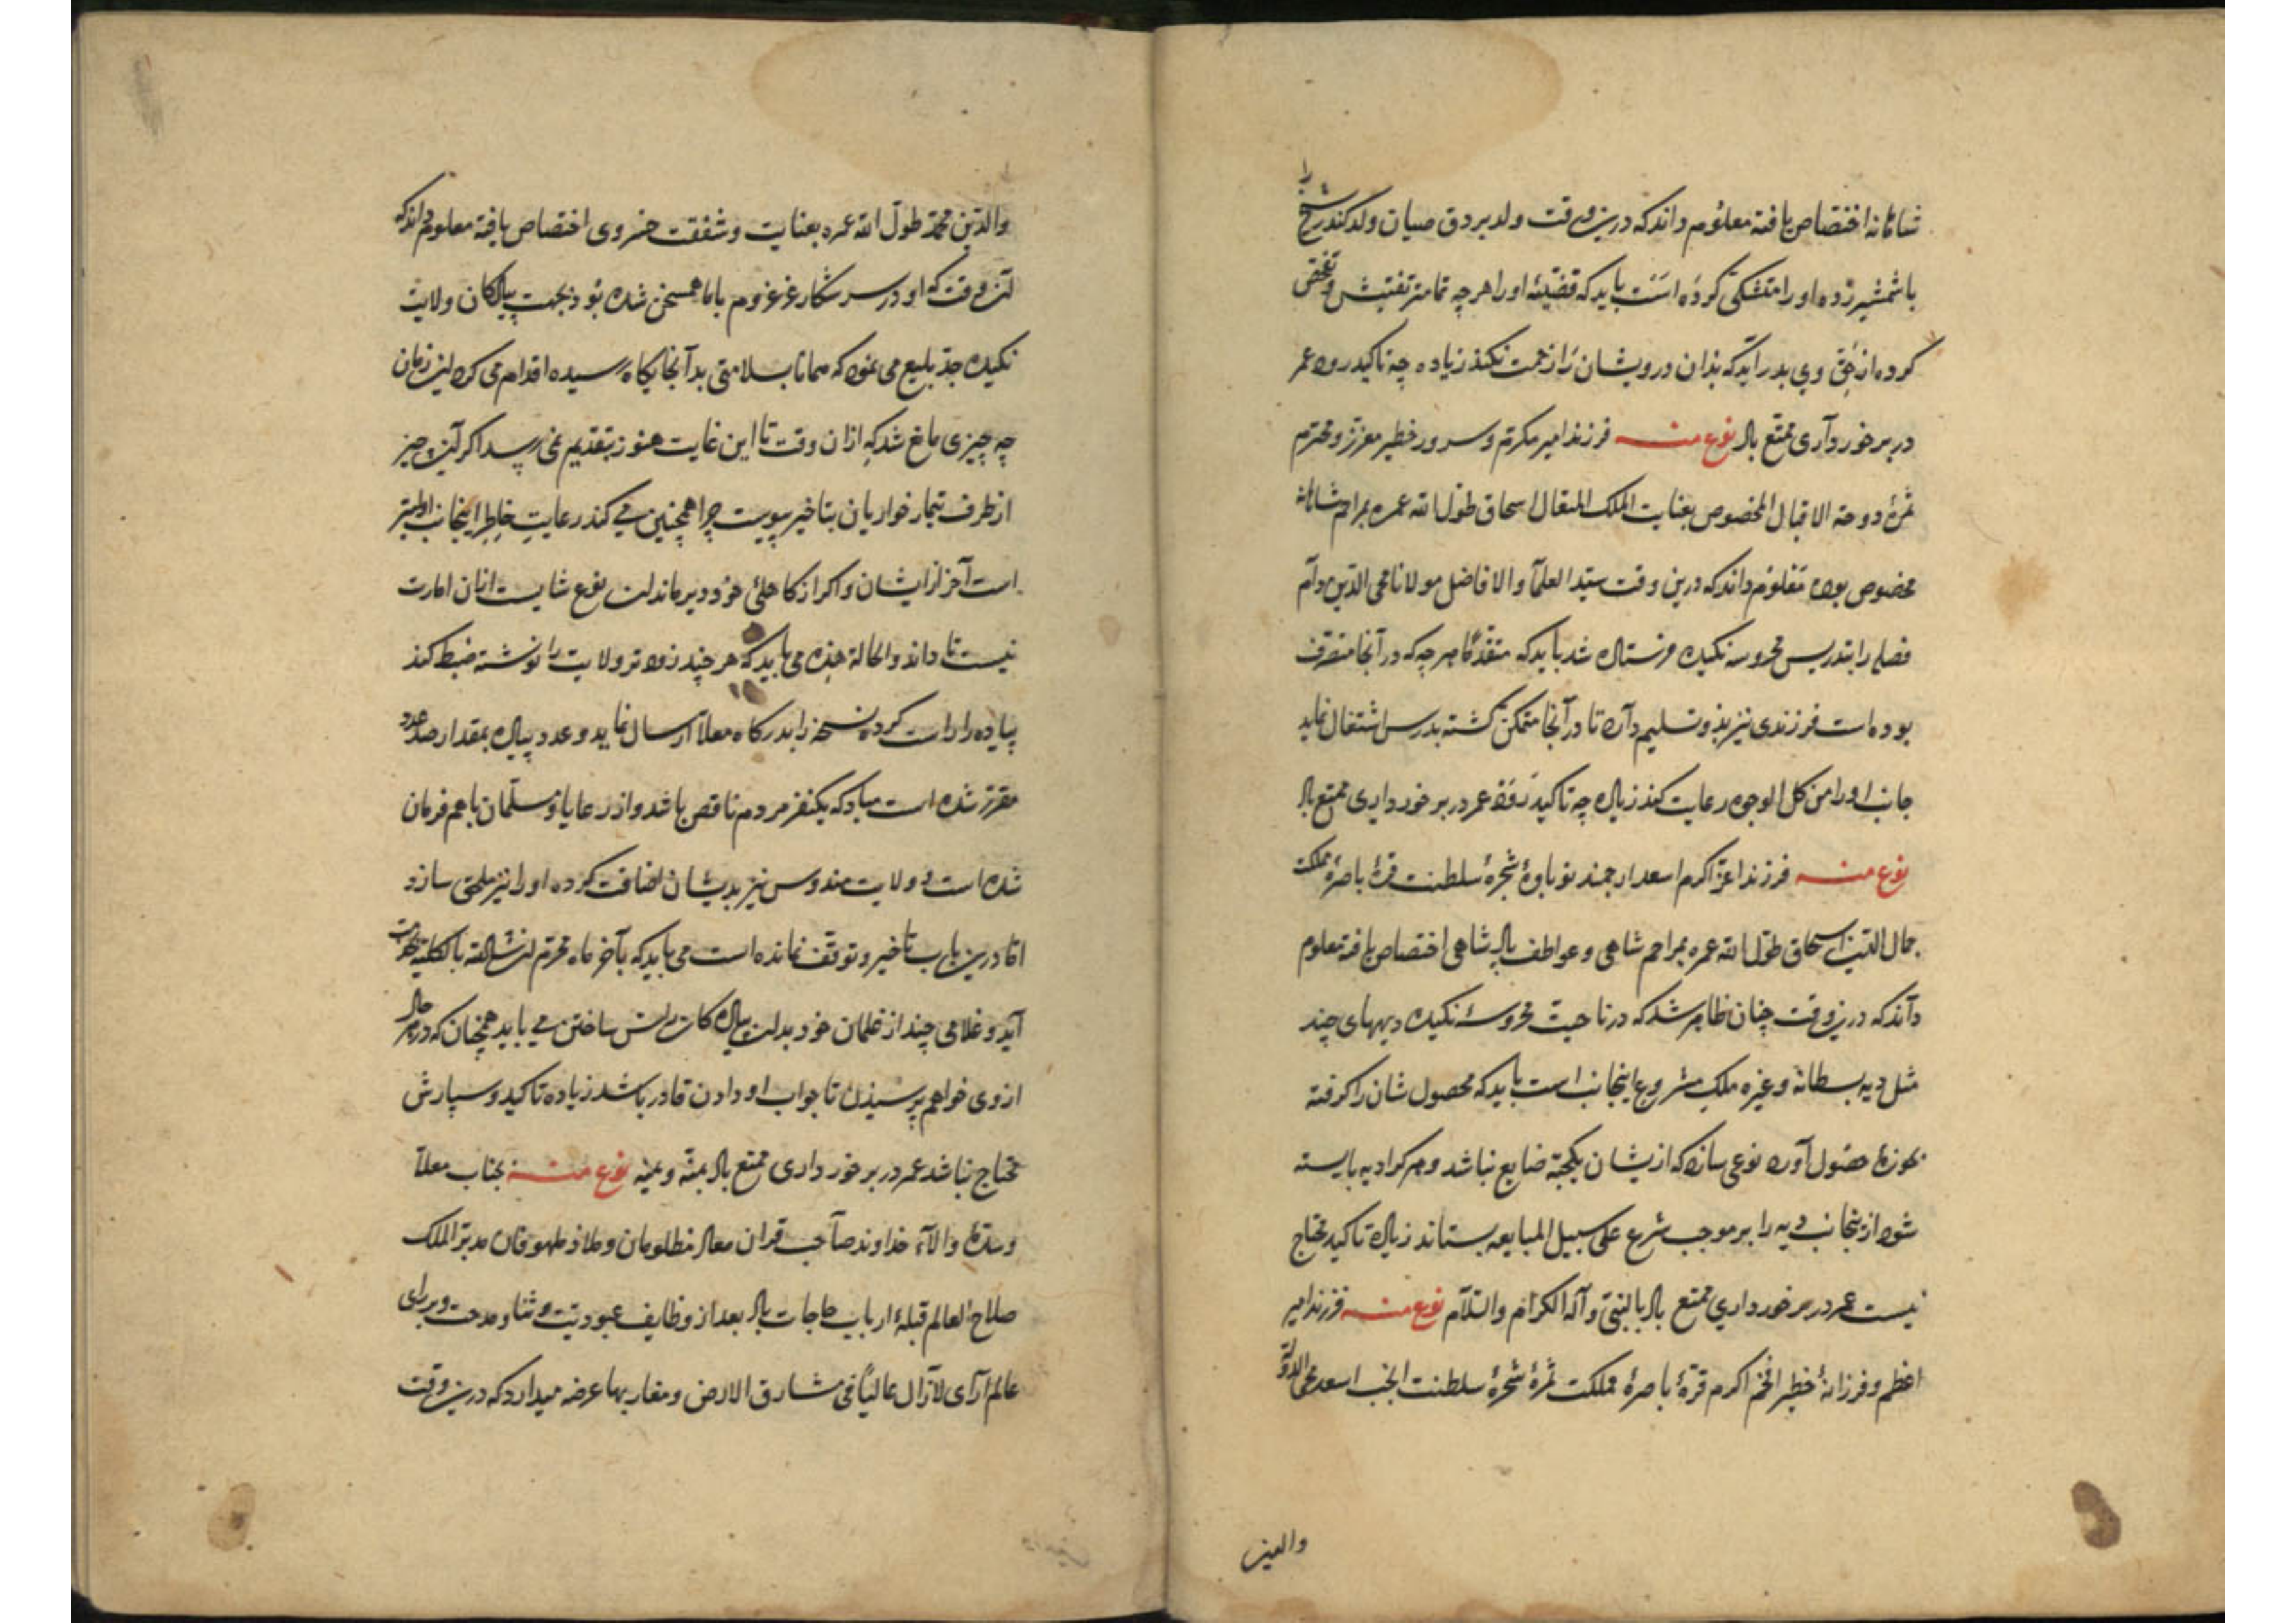 شاهانه اختصاص یافته معلوم داند که درین وقت ولد بردق صیان ولد کندر شیخ را
باشمشیر زده او را متشکی کرده است باید که قضیهٔ او را هرچه تمامتر تفتیش و تفحص
کرده از حق وی بدر آید که بذان درویشان را زحمت نکند زیاده چه تاکید رود عمر
در برخورداری ممتع باد نوع منه فرزند امیر مکرم و سرور خطیر معزز و محترم
ثمرهٔ دوحة الاقبال المخصوص بعنایت الملک المتعال اسحاق طول الله عمره بمراحم شاهانه
مخصوص بوده معلوم داند که درین وقت سید العلما و الافاضل مولانا محی الدین دام
فضله را بتدریس محروسه نکیده فرستاده شد باید که متقدما هرچه که در آنجا متصرف
بوده است فرزندی نیز بذو تسلیم دارد تا در آنجا متمکن گشته بدرس اشتغال نماید
جانب او را من کل الوجوه رعایت کند زیاده چه تاکید رود عمر در برخورداری ممتع باد
نوع منه فرزند اعز اکرم اسعد ارجمند نوباوهٔ شجرهٔ سلطنت قرهٔ باصرهٔ مملکت
جمال الدین اسحاق طول الله عمره بمراحم شاهی و عواطف پادشاهی اختصاص یافته معلوم
داند که درین وقت چنان ظاهر شد که در ناحیت محروسهٔ نکیده دیههای چند
مثل دیه بسطانه و غیره ملک مشروع اینجانب است باید که محصول شان را کرفته
بحوزهٔ حصول آورد نوعی سازد که ازیشان یکحبه ضایع نباشد و هر کرا دیه بایسته
شود از اینجانب دیه را بر موجب شرع علی سبیل المبایعه بستاند زیاده تاکید محتاج
نیست عمر در برخورداری ممتع باد بالنبی و آله الکرام والسلام نوع منه فرزند امیر
اعظم و فرزانهٔ خطیر افخم اکرم قرهٔ باصرهٔ مملکت ثمرهٔ شجرهٔ سلطنت انجب اسعد محی الدولة
والدین
والدین محمد طول الله عمره بعنایت و شفقت خسروی اختصاص یافته معلوم داند که
آن وقت که او در سر شکار غرغروم باما همسخن شده بود بجهت پیادکان ولایت
نکیده جد بلیغ می نمود که همانا بسلامتی بدآنجایکاه رسیده اقدام می کرد این زمان
چه چیزی مانع شد که ازان وقت تا این غایت هنوز بتقدیم نمی رسد اکر آن چیز
از طرف تجار خواریان بتاخیر پیوست چرا همچنین می کند رعایت خاطر اینجانب اولیتر
است آخر از ایشان و اکر از کاهلی خود دیر ماند این نوع شایست انان امارت
نیست تا داند والحالة هذه می باید که هرچند زودتر ولایت را نوشته ضبط کند
پیاده را راست کرده نسخه را بدرکاه معلا ارسال نماید و عدد پیاده بمقدار صد عدد
مقرر شده است مبادکه یکنفر مردم ناقص باشد و از رعایا و مسلمان باهم فرمان
شده است و ولایت مندوس نیز بدیشان اضافت کرده او را نیز ملحق سازد
اما درین باب تاخیر و توقف نمانده است می باید که بآخر ماه محرم ان شاء الله بالکلیه
آید و غلامی چند از غلمان خود بدان پیادکان راس ساختن می باید همچنان که در هر حال
از وی خواهم پرسیدن تا جواب او دادن قادر باشد زیاده تاکید و سپارش
محتاج نباشد عمر در برخورداری ممتع باد بمنه و یمنه نوع منه بجناب معلا
و سدهٔ والاء خداوند صاحب قران معاذ مظلومان و ملاذ ملهوفان مدبر الملک
صلاح العالم قبلهٔ ارباب حاجات باد بعد از وظایف عبودیت و ثنا و مدحت و برای
عالم آرای لازال عالیا فی مشارق الارض و مغاربها عرضه میدارد که درین وقت